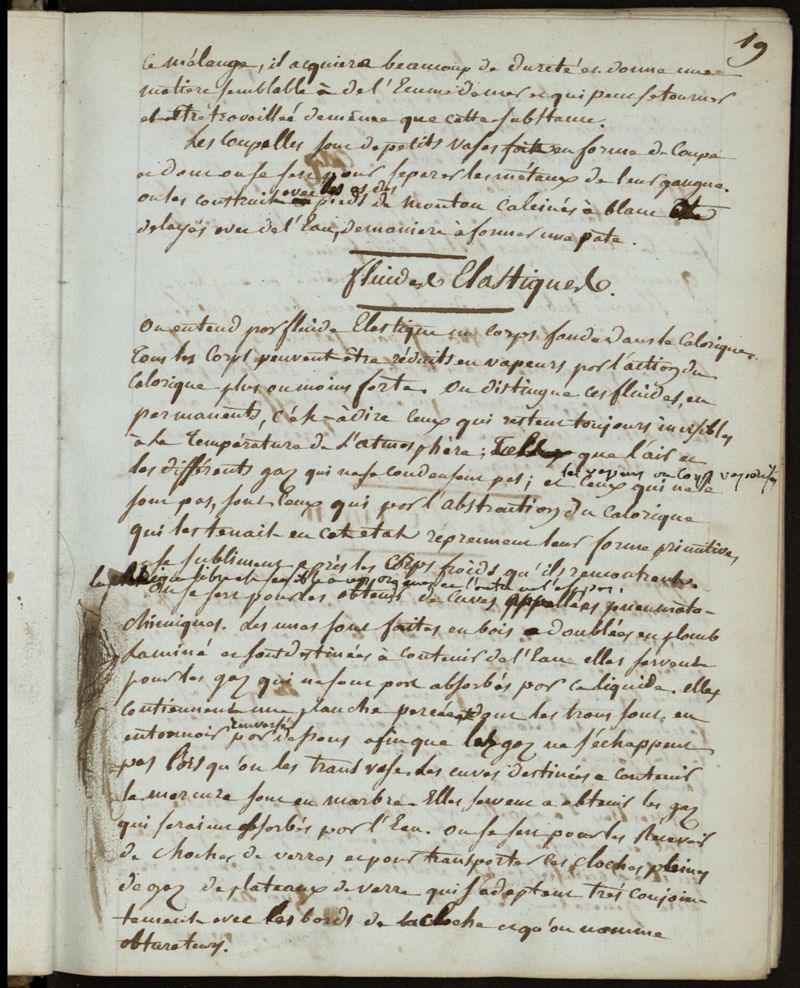 19
ce mélange, il acquiere beaucoup de dureté et donne une
matiere semblable à de l'Ecume de mer et qui peut se tourner
et être travaillée de même que cette substance.
Les Coupelles sont de petits vases faits en forme de Coupe
et dont on se sert pour separer les métaux de leur gangue.
on les construit avec les os des pieds de mouton calcinés à blanc et
delayés avec de l'Eau, de maniere à former une pâte.
fluides Elastiques.
On entend par fluide Elastique un corps fondu dans le Calorique.
Tous les Corps peuvent être réduits en vapeurs par l'action du
Calorique plus ou moins forte. On distingue ces fluides, en
permanents, c'est-à-dire ceux qui restent toujours invisibles
à la Température de l'atmosphère; Tels que l'air et
les différents gaz qui ne se condensent pas; et les vapeurs ou corps vaporisés ceux qui ne le
sont pas, sont Ceux qui par l'abstraction du Calorique
qui les tenait en cet etat reprennent leur forme primitive,
se subliment après les corps froids qu'ils rencontrent.
On se sert pour les obtenir de Cuves appellées pneumato-
chimiques. Les unes sont faites en bois et doublées en plomb
Laminé et sont destinées à contenir de l'Eau elles servent
pour les gaz qui ne sont point absorbés par ce liquide. elles
contiennent une planche percée dont les trous sont en
entonnoir renversé par dessous afin que les gaz ne s'échappent
pas lors qu'on les transvase. Les cuves destinées a contenir
le mercure sont en marbre. Elles servent a obtenir les gaz
qui seraient absorbés par l'Eau. On se sert pour les recevoir
de cloches de verres et pour transporter les cloches pleines
de gaz de plateaux de verre qui s'adaptent très conjoin-
tement avec les bords de la cloche et qu'on nomme
obturateurs.